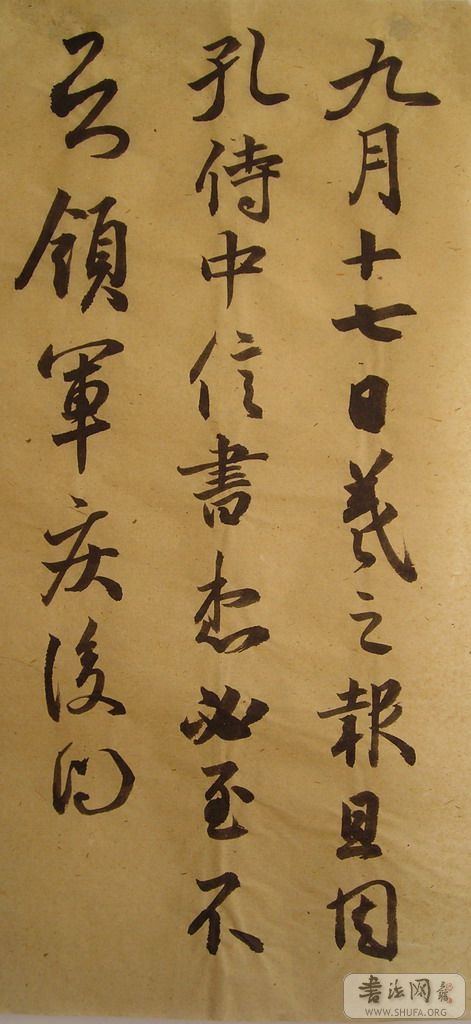 九月十七日羲之報且因
孔侍中信書想必至不
知領軍疾後問
书法网
WWW.SHUFA.ORG